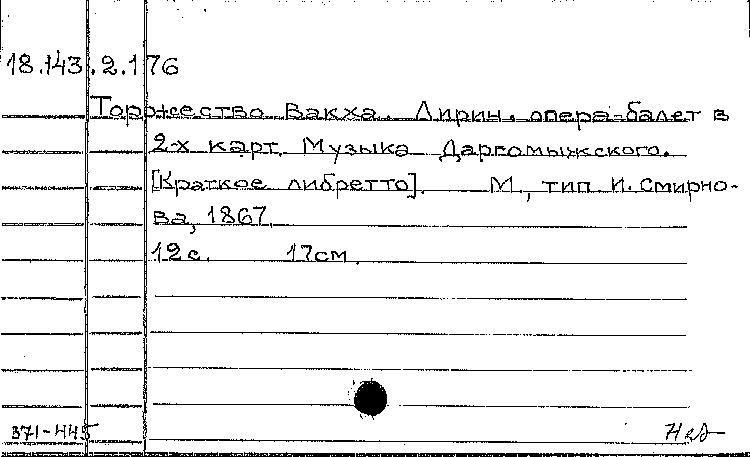 18.143.2.176
Торжество Вакха. Лирич. опера-балет в
2-х карт. Музыка Даргомыжского.
[Краткое либретто]. М., тип. И. Смирно-
ва, 1867.
12 с. 17 см.
371-445